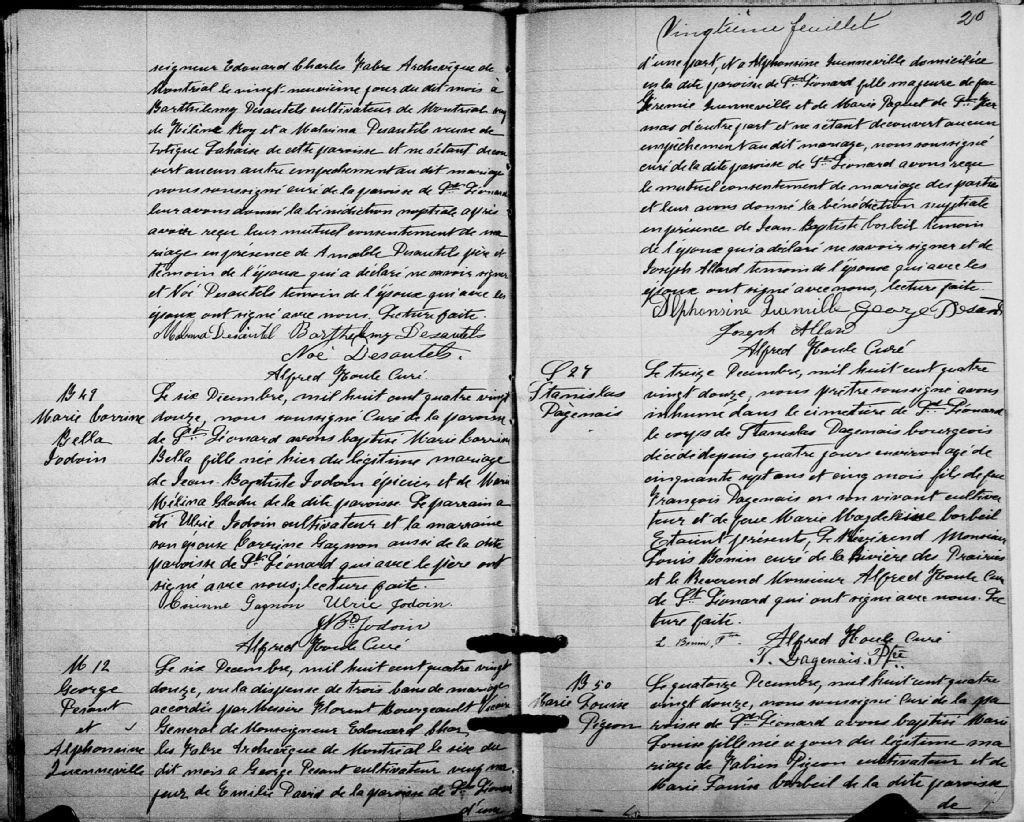 seigneur Edouard Charles Fabre Archevêque de
Montréal le vingt-neuvième jour du dit mois à
Barthélemy Desautels cultivateur de Montréal
de Hélène Roy et a Malvina Desautels veuve de
Lahaise de cette paroisse et ne s'étant décou
vert aucun autre empêchement au dit mariage
nous soussigné curé de la paroisse de St. Léonard
leur avons donné la bénédiction nuptiale après
avoir reçu leur mutuel consentement de ma
riage en présence de Amable Desautels père et
témoin de l'époux qui a déclaré ne savoir signer
et Noé Desautels témoin de l'épouse qui avec les
époux ont signé avec nous. Lecture faite.
Malvina Desautel Barthelemy Desautels
Noé Desautels.
Alfred Houle Curé
B 49
Marie Corrine
Bella
Jodoin
Le six Décembre, mil huit cent quatre vingt
douze, nous soussigné Curé de la paroisse
de St. Léonard avons baptisé Marie Corrine
Bella fille née hier du légitime mariage
de Jean-Baptiste Jodoin épicier et de Marie
Mélina Gladu de la dite paroisse. Le parrain a
été Ulric Jodoin cultivateur et la marraine
son épouse Corrine Gagnon aussi de la dite
paroisse de St. Léonard qui avec le père ont
signé avec nous; lecture faite.
Corinne Gagnon Ulric Jodoin.
J Bte Jodoin
Alfred Houle Curé
M 12
George
Pesant
et
Alphonsine
Quenneville
Le six Decembre, mil huit cent quatre vingt
douze, vu la dispense de trois bans de mariage
accordée par Messire Florent Bourgeault Vicaire
Général de Monseigneur Edouard Char
les Fabre Archevêque de Montréal le six du
dit mois a George Pesant cultivateur
jeur de Emilie David de la paroisse de St. Léonard
d'une
Vingtième feuillet
20
d'une part, et a Alphonsine Quenneville domiciliée
en la dite paroisse de St. Léonard fille majeure de feu
Jérémie Quenneville et de Marie Paquet de St. Her
mas d'autre part et ne s'étant découvert aucun
empêchement au dit mariage, nous soussigné
curé de la dite paroisse de St. Léonard avons reçu
le mutuel consentement de mariage des parties
et leur avons donné la bénédiction nuptiale
en présence de Jean-Baptiste Corbeil témoin
de l'époux qui a déclaré ne savoir signer et de
Joseph Allard témoin de l'épouse qui avec les
époux ont signé avec nous, lecture faite.
Alphonsine George Pesant
Joseph Allard
Alfred Houle Curé
S 27
Stanislas
Dagenais
Le treize Decembre, mil huit cent quatre
vingt douze, nous prêtre soussigné avons
inhumé dans le cimetière de St. Léonard
le corps de Stanislas Dagenais bourgeois
décédé depuis quatre jours environ agé de
cinquante sept ans et cinq mois fils de feu
François Dagenais en son vivant cultiva
teur et de feue Marie Magdeleine Corbeil
Etaient présents, Le Révérend Monsieur
Louis Bonin curé de la Rivière des Prairies
et le Reverend Monsieur Alfred Houle Curé
de St. Léonard qui ont signé avec nous. Lec
ture faite.
L. Bonin, Ptre
Alfred Houle Curé
T. Dagenais. Ptre
B 50
Marie Louise
Pigeon
Le quatorze Decembre, mil huit cent quatre
vingt douze, nous soussigné Curé de la pa
roisse de St. Léonard avons baptisé Marie
Louise fille née ce jour du légitime ma
riage de Fabien Pigeon cultivateur et de
Marie Louise Corbeil de la dite paroisse
de